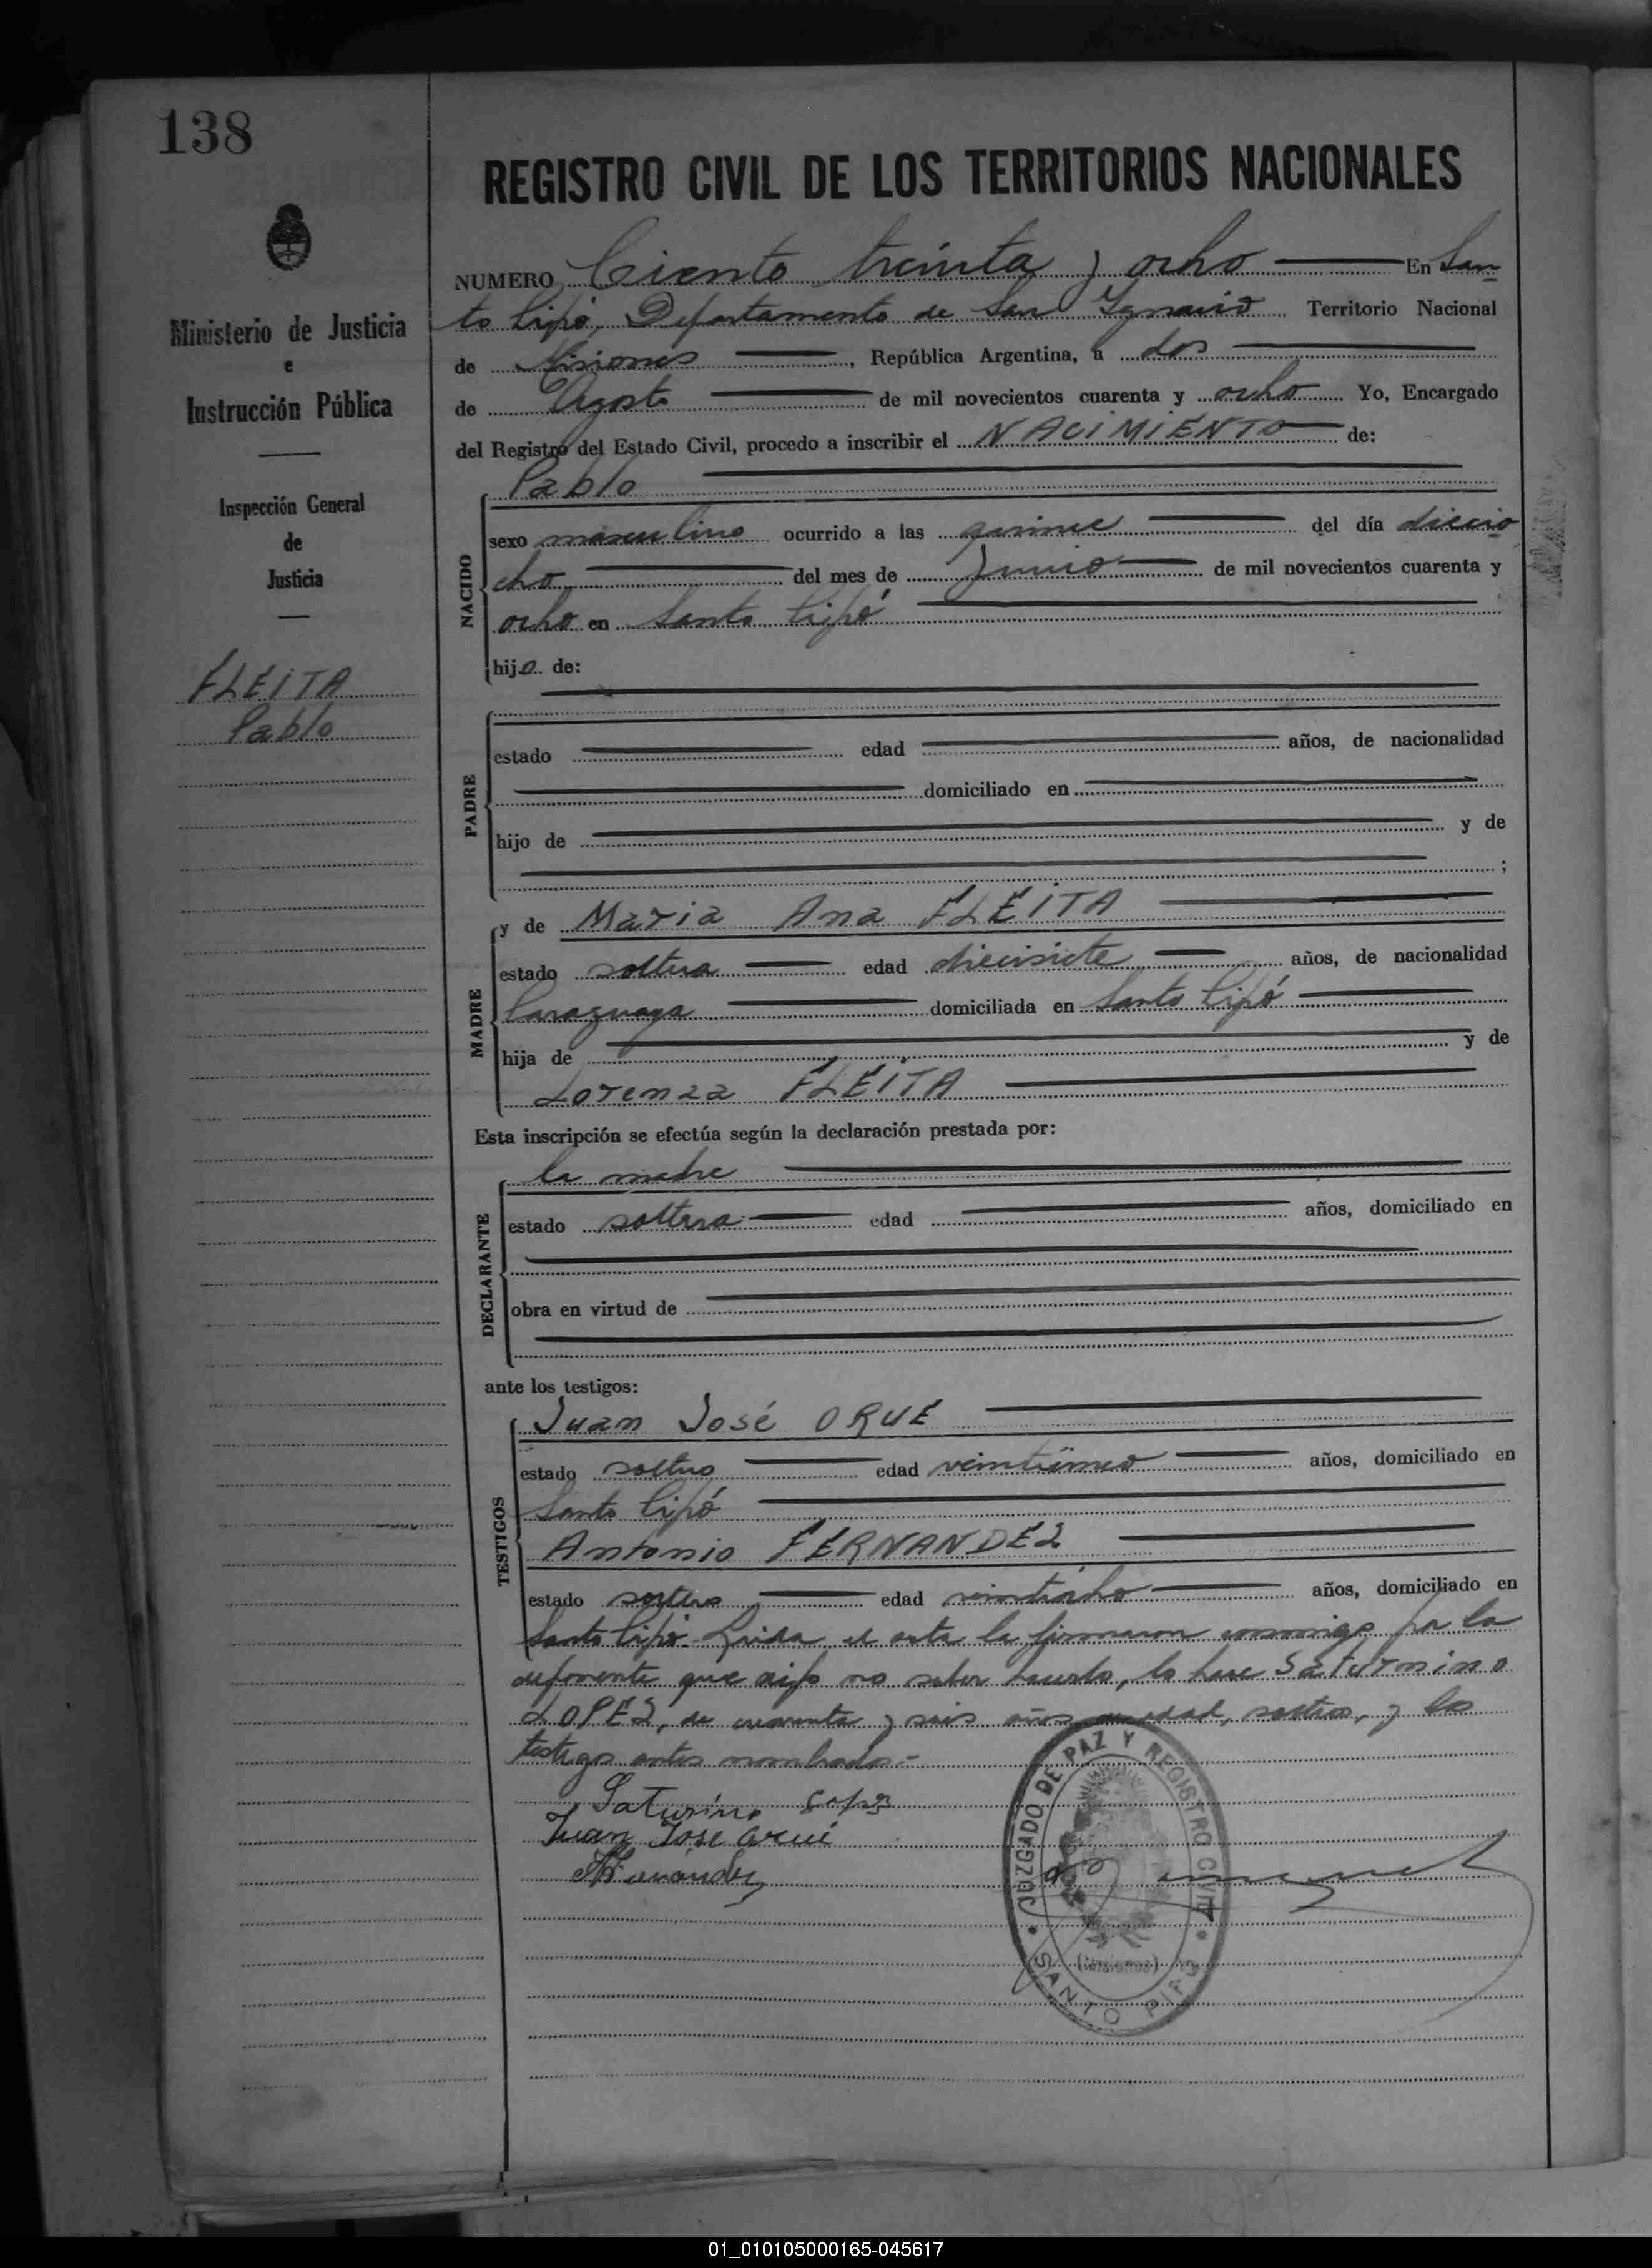 138
REGISTRO CIVIL DE LOS TERRITORIOS NACIONALES
Ministerio de Justicia
e
Instrucción Pública
Inspección General
de
Justicia
FLEITA
Pablo
NUMERO Ciento treinta y ocho En San
to Pipó, Departamento de San Ignacio Territorio Nacional
de Misiones, República Argentina, a dos
de Agosto de mil novecientos cuarenta y ocho Yo, Encargado
del Registro del Estado Civil, procedo a inscribir el NACIMIENTO de:
NACIDO
Pablo
sexo masculino ocurrido a las quince del día diecio
cho del mes de Junio de mil novecientos cuarenta y
ocho en Santo Pipó
hijo de:
PADRE
estado edad años, de nacionalidad
domiciliado en
hijo de y de
;
MADRE
y de Maria Ana FLEITA
estado soltera edad diecisiete años, de nacionalidad
Paraguaya domiciliada en Santo Pipó
hija de y de
Lorenza FLEITA
Esta inscripción se efectúa según la declaración prestada por:
DECLARANTE
la madre
estado soltera edad años, domiciliado en
obra en virtud de
ante los testigos:
TESTIGOS
Juan José ORUE
estado soltero edad años, domiciliado en
Santo Pipó
Antonio FERNANDEZ
estado soltero edad veintiocho años, domiciliado en
Santo Pipó. Leida el acta la firmaron conmigo por la
deponente que dijo no saber hacerlo, lo hace Saturnino
LOPEZ, de cuarenta y seis años de edad, soltero, y los
testigos antes nombrados.=
Saturnino Lopez
Juan Jose Orué
AFernández
JUZGADO DE PAZ Y REGISTRO CIVIL
(Misiones)
SANTO PIPÓ
01_010105000165-045617